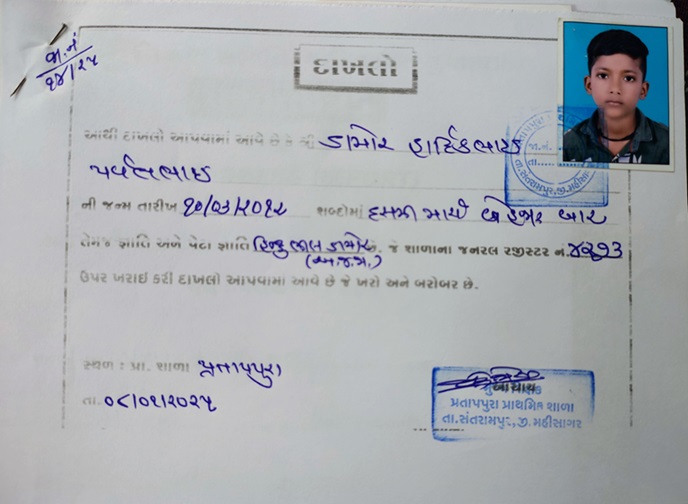 જા.નં
૧૪/૨૫
દાખલો
આથી દાખલો આપવામાં આવે છે કે શ્રી ડામોર હાર્દિકભાઇ
પર્વતભાઇ
ની જન્મ તારીખ ૧૦/૦૩/૨૦૧૨ શબ્દોમાં દસમી માર્ચ બે હજાર બાર
તેમજ જ્ઞાતિ અને પેટા જ્ઞાતિ હિન્દુ ભીલ ડામોર છે. જે શાળાના જનરલ રજીસ્ટર નં.
(અ.જ.જા.)
ઉપર ખરાઇ કરી દાખલો આપવામાં આવે છે જે ખરો અને બરોબર છે.
સ્થળ : પ્રા. શાળા પ્રતાપપુરા
તા. ૦૮/૦૧/૨૦૨૫
આચાર્ય
પ્રતાપપુરા પ્રાથમિક શાળા
તા.સંતરામપુર,જી.મહીસાગર
જા.નં.
તા.
તા.સંતરામપુર,જી.મહીસાગર